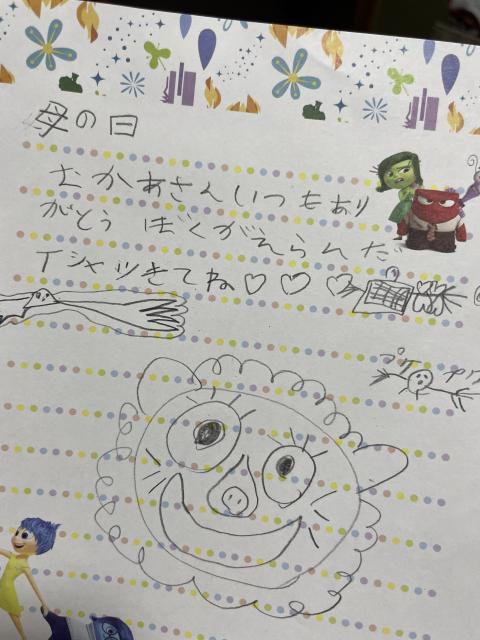 母の日
おかあさんいつもあり
がとう ぼくがえらんだ
Tシャツきてね♡♡♡